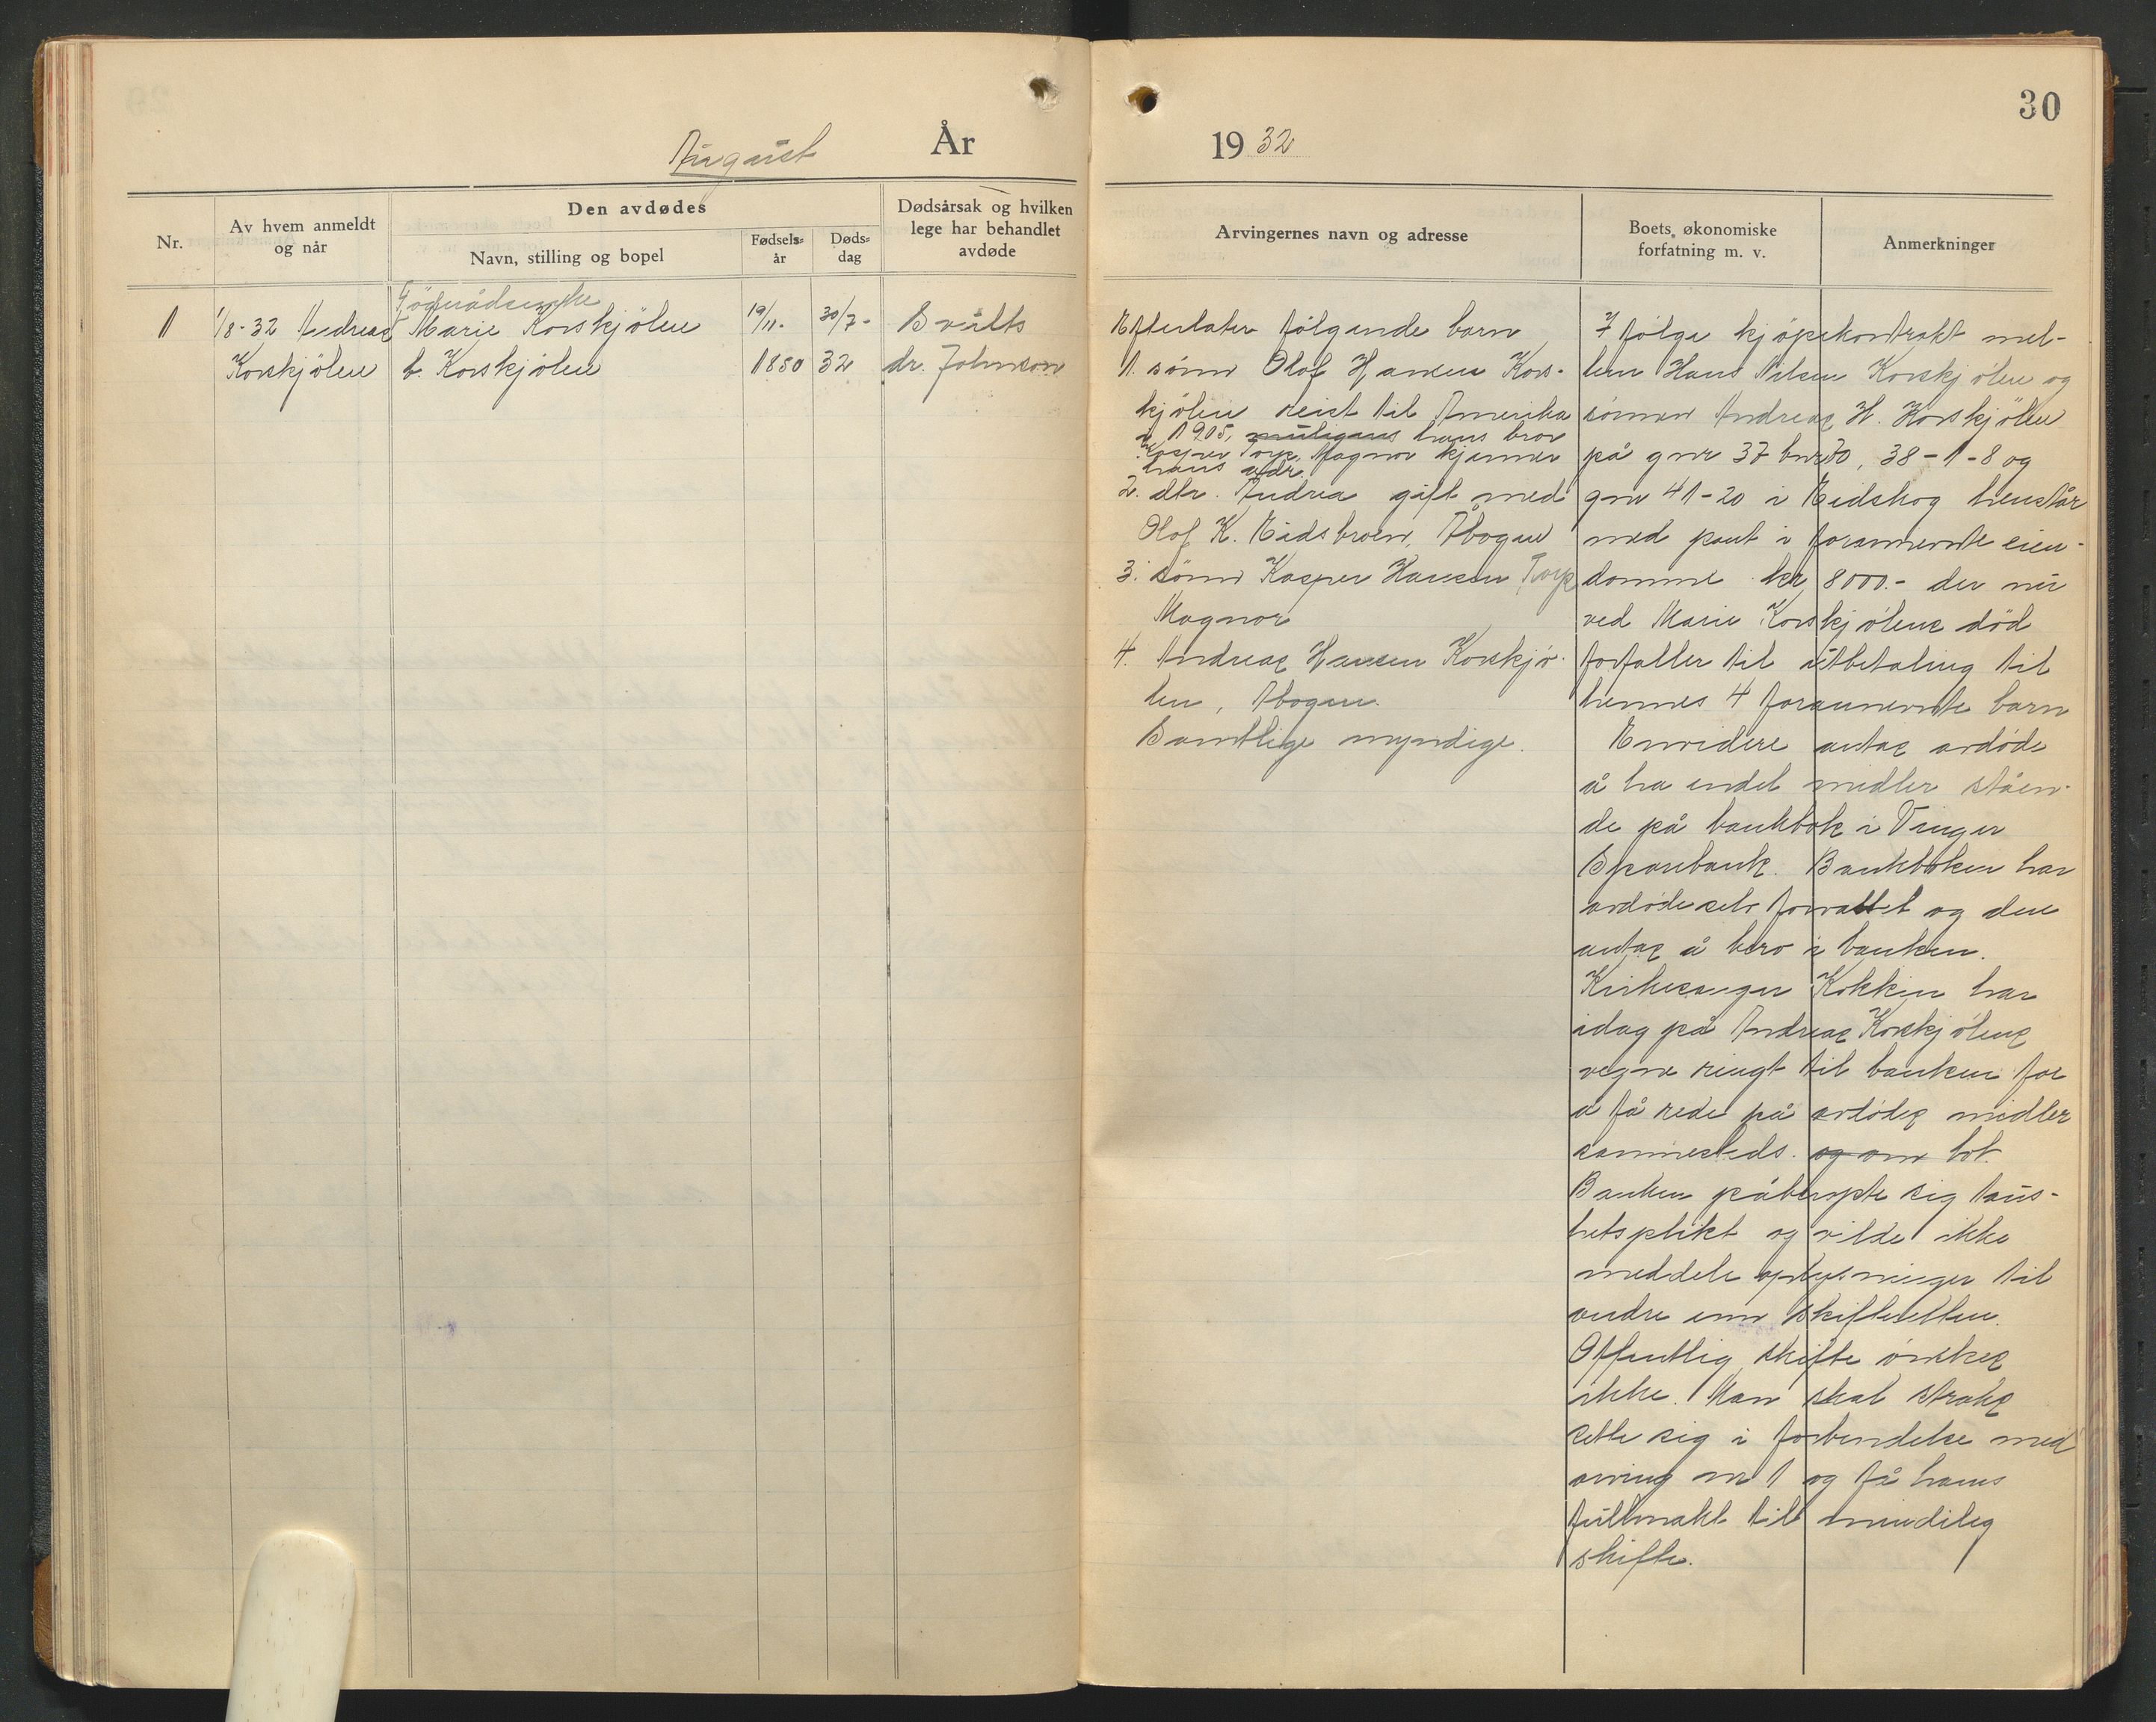 30
August År 1932
Nr.
Av hvem anmeldt
og når
Den avdødes
Navn, stilling og bopel
Fødsels=
år
Døds=
dag
Dødsårsak og hvilken
lege har behandlet
avdøde
Arvingernes navn og adresse
Boets økonomiske
forfatning m. v.
Anmerkninger
1
1/8-32 Andreas
Korskjölen
Föderådsenke
Marie Korskjölen
b. Korskjölen
19/11-
1850
30/7-
32
Svulst
dr. Johnson
Efterlater følgende barn
1. sönn Olof Hansen Kors-
kjölen reist til Amerika
i 1905, muligens hans bror
Kasper Torp, Magnor kjenner
hans adr.
2. dtr. Andrea gift med
Olof K. Eidsbroen, Åbogen
3. sönn Kasper Hansen Torp
Magnor
4. Andreas Hansen Korskjö-
len, Åbogen.
Samtlige myndige.
I følge kjöpekontrakt mel-
lem Hans Nilsen Korskjölen og
sönnen Andreas H. Korskjölen
på gnr 37 bnr 70, 38-1-8 og
gnr 41-20 i Eidskog henstår
med pant i forannevnte eien-
domme kr 8000.- der nu
ved Marie Korskjölens död
forfaller til utbetaling til
hennes 4 forannevnte barn
Envidere antas avdöde
å ha endel midler ståen-
de på bankbok i Vinger
Sparebank. Bankboken har
avdöde selv forvaltet og den
antas å bero i banken.
Kirkesanger Kokkin har
idag på Andreas Korskjölens
vegne ringt til banken for
å få rede på avdödes midler
sammesteds. og om
Banken påberopte sig taus-
hetsplikt og vilde ikke
meddele oplysninger til
andre enn skifteretten.
Offentlig skifte önskes
ikke. Man skal straks
sette sig i forbindelse med
arving nr 1 og få hans
fullmakt til mindelig
skifte.